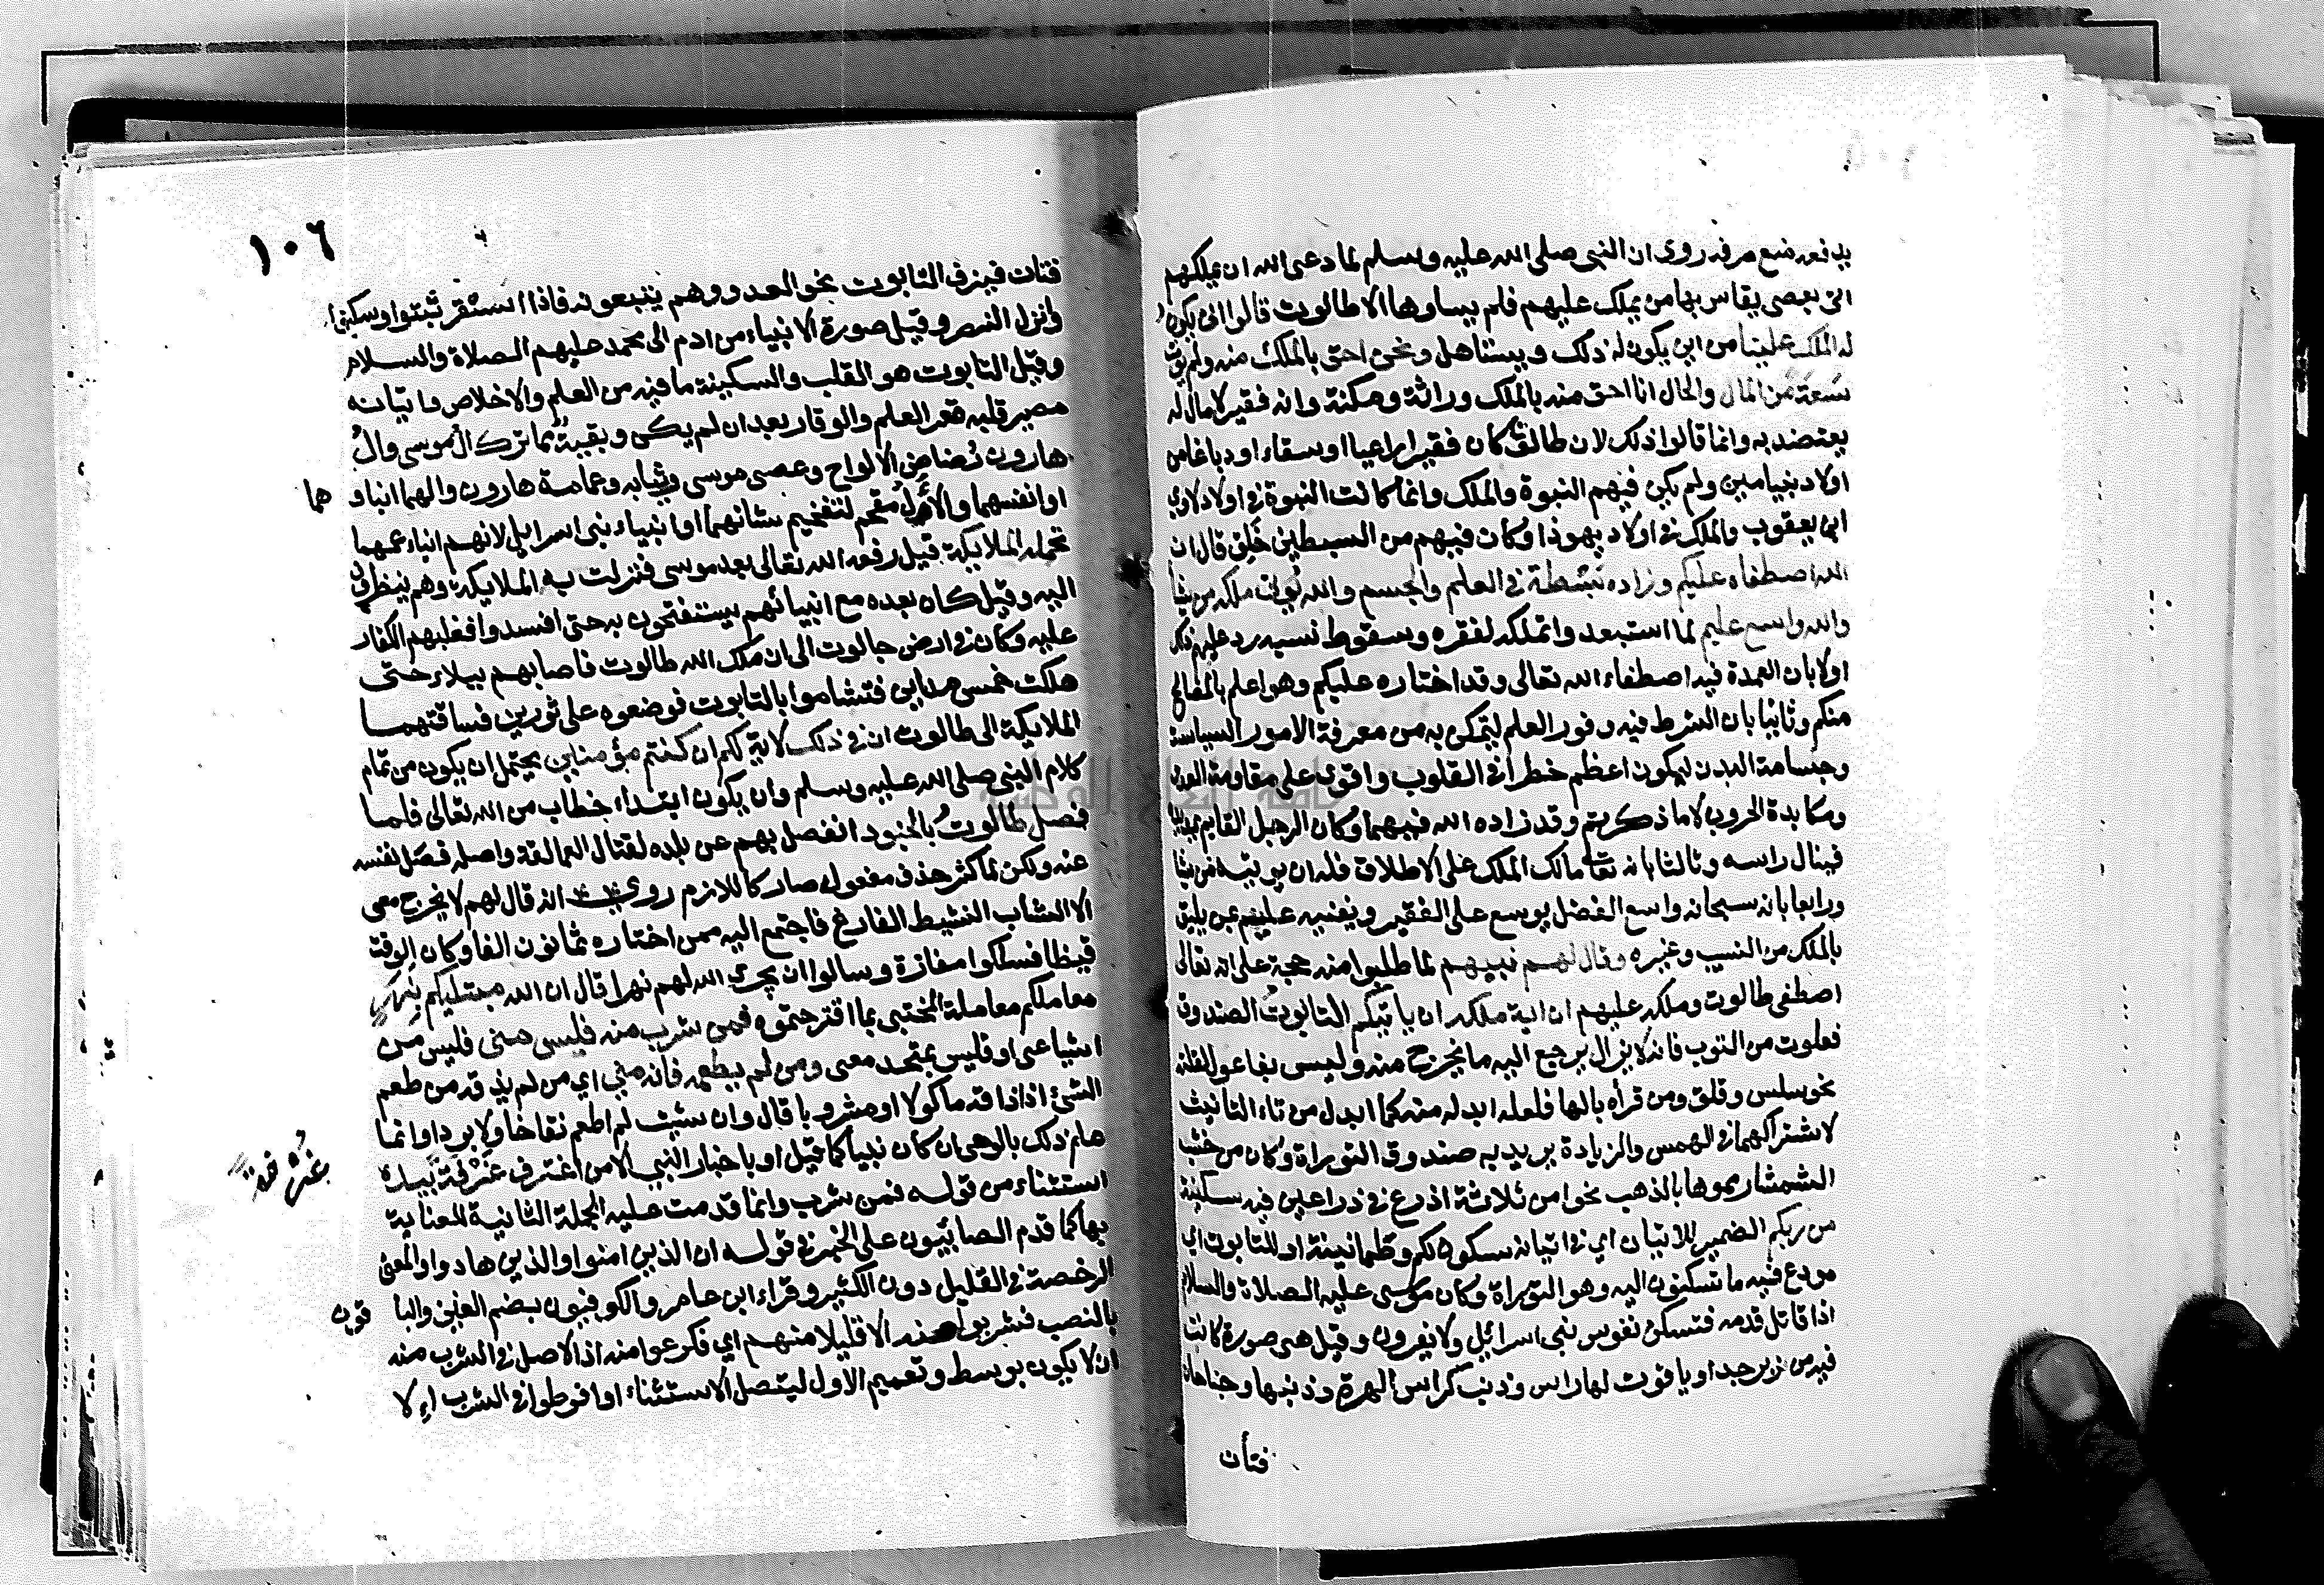 يدفعه منع صرفه روى ان النبي صلى الله عليه وسلم لما دعى الله ان يملكهم
اتى بعصى يقاس بها من يملك عليهم فلم يساوها الا طالوت قالوا انى يكون
له الملك علينا من اين يكون له ذلك ويستاهل ونحن احق بالملك منه ولم يؤت
سعة من المال والحال انا احق منه بالملك وراثة ومكنة وانه فقير لا مال له
يعتضد به وانما قالوا ذلك لان طالوت كان فقيرا راعيا او سقاء او دباغا من
اولاد بنيامين ولم يكن فيهم النبوة والملك وانما كانت النبوة في اولاد لاوي
ابن يعقوب والملك في اولاد يهوذا وكان فيهم من السبطين خلق قال ان
الله اصطفاه عليكم وزاده بسطة في العلم والجسم والله يؤتى ملكه من يشا
والله واسع عليم لما استبعدوا تملكه لفقره وسقوط نسبه رد عليهم ذلك
اولا بان العمدة فيه اصطفاء الله تعالى وقد اختاره عليكم وهو اعلم بالمصالح
منكم وثانيا بان الشرط فيه وفور العلم ليتمكن به من معرفة الامور السياسة
وجسامة البدن ليكون اعظم خطرا في القلوب واقوى على مقاومة العدو
ومكابدة الحروب لا ما ذكرتم وقد زاده الله فيهما وكان الرجل القايم يمد يده
فينال راسه وثالثا بانه تعا مالك الملك على الاطلاق فله ان يوتيه من يشا
ورابعا بانه سبحانه واسع الفضل يوسع على الفقير ويغنيه عليم بمن يليق
بالملك من النسب وغيره وقال لهم نبيهم لما طلبوا منه حجة على انه تعالى
اصطفى طالوت وملكه عليهم ان اية ملكه ان ياتيكم التابوت الصندوق
فعلوت من التوب فانه لا يزال يرجع اليه ما يخرج منه وليس بفاعول لقلته
نحو سلس وقلق ومن قرأه بالها فلعله ابدله منه كما ابدل من تاء التانيث
لاشتراكهما في الهمس والزيادة يريد به صندوق التوراة وكان من خشب
الشمشار مموها بالذهب نحوا من ثلاثة اذرع في ذراعين فيه سكينة
من ربكم الضمير للاتيان اي في اتيانه سكون لكم وطمانينة او للتابوت اي
مودع فيه ما تسكنون اليه وهو التوراة وكان موسى عليه الصلاة والسلام
اذا قاتل قدمه فتسكن نفوس بني اسرائل ولا يفرون وقيل هي صورة كانت
فيه من زبرجد او ياقوت لها راس وذنب كراس الهرة وذنبها وجناحان
فتأن
١٠٦
فتان فيزف التابوت نحو العدو وهم يتبعونه فاذا استقر ثبتوا وسكنوا
وانزل النصر وقيل صورة الانبياء من ادم الى محمد عليهم الصلاة والسلام
وقيل التابوت هو القلب والسكينة ما فيه من العلم والاخلاص واتيانه
مصير قلبه مقر العلم والوقار بعد ان لم يكن وبقية مما ترك ال موسى وال
هارون رضاض الالواح وعصى موسى وثيابه وعمامة هارون والهما ابناو هما
او انفسهما والال مقحم لتفخيم شانهما او انبياء بني اسرايل لانهم ابناء عمهما
تحمله الملايكة قيل رفعه الله تعالى بعد موسى فنزلت به الملايكة وهم ينظرون
اليه وقيل كان بعده مع انبيائهم يستفتحون به حتى افسدوا فغلبهم الكفار
عليه وكان في ارض جالوت الى ان ملك الله طالوت فاصابهم ببلاء حتى
هلكت خمس مداين فتشاموا بالتابوت فوضعوه على ثورين فساقتهما
الملايكة الى طالوت ان في ذلك لاية لكم ان كنتم مؤمنين يحتمل ان يكون من تمام
كلام النبي صلى الله عليه وسلم وان يكون ابتداء خطاب من الله تعالى فلما
فصل طالوت بالجنود انفصل بهم عن بلده لقتال العمالقة واصله فصل نفسه
عنه ولكن لما كثر حذف مفعوله صار كاللازم روي انه قال لهم لا يخرج معى
الا الشاب النشيط الفارغ فاجتمع اليه ممن اختاره ثمانون الفا وكان الوقت
قيظا فسلكوا مفازة وسالوا ان يجري الله لهم نهرا قال ان الله مبتليكم بنهر
معاملكم معاملة المختبر بما اقترحتموه فمن شرب منه فليس منى فليس من
اشياعى او فليس بمتحد معى ومن لم يطعمه فانه مني اي من لم يذقه من طعم
الشئ اذا ذاقه ماكولا او مشروبا قال وان شئت لم اطعم نقاخا ولا بردا وانما
علم ذلك بالوحى ان كان نبيا كما قيل او باخبار النبي الا من اغترف غرفة بيده
استثناء من قوله فمن شرب وانما قدمت عليه الجملة الثانية للعناية
بها كما قدم الصابئون على الخبر في قوله ان الذين امنوا والذين هادوا والمعنى
الرخصة في القليل دون الكثير وقراء ابن عامر والكوفيون بضم الغين والبا قون
بالنصب فشربوا منه الا قليلا منهم اي فكرعوا منه اذ الاصل في الشرب منه
ان لا يكون بوسط وتعميم الاول ليتصل الاستثناء او افرطوا في الشرب الا